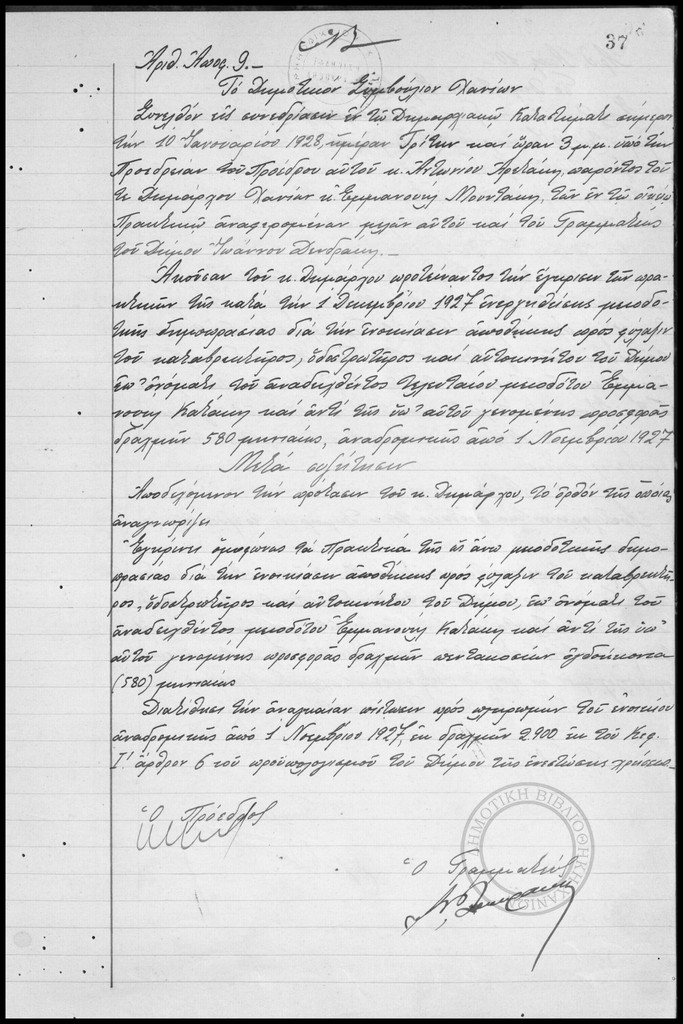 37
Ἀριθ. Ἀποφ. 9.-
Τό Δημοτικόν Συμβούλιον Χανίων
Συνελθόν εἰς συνεδρίασιν ἐν τῷ Δημαρχιακῷ Καταστήματι σήμερον
τήν 10 Ἰανουαρίου 1928, ἡμέραν Τρίτην καί ὥραν 3 μ.μ. ὑπό τήν
Προεδρείαν τοῦ Προέδρου αὐτοῦ κ. Ἀντωνίου Ἀρετάκη, παρόντος τοῦ
κ. Δημάρχου Χανίων κ. Ἐμμανουήλ Μουντάκη, τῶν ἐν τῷ οἰκείῳ
Πρακτικῷ ἀναφερομένων μελῶν αὐτοῦ καί τοῦ Γραμματέως
τοῦ Δήμου Ἰωάννου Δενδράκη.-
Ἀκοῦσαν τοῦ κ. Δημάρχου προτείναντος τήν ἔγκρισιν τῶν πρα-
κτικῶν τῆς κατά τήν 1 Δεκεμβρίου 1927 ἐνεργηθείσης μειοδο-
τικῆς δημοπρασίας διά τήν ἐνοικίασιν ἀποθήκης πρός φύλαξιν
τοῦ καταβρεκτῆρος, ὁδοστρωτῆρος καί αὐτοκινήτου τοῦ Δήμου
ἐπ' ὀνόματι τοῦ ἀναδειχθέντος τελευταίου μειοδότου Ἐμμα-
νουήλ Κατάκη καί ἀντί τῆς ὑπ' αὐτοῦ γενομένης προσφορᾶς
δραχμῶν 580 μηνιαίως, ἀναδρομικῶς ἀπό 1 Νοεμβρίου 1927
Μετά συζήτησιν
Ἀποδεχόμενον τήν πρότασιν τοῦ κ. Δημάρχου, τό ὀρθόν τῆς ὁποίας
ἀναγνωρίζει
Ἐγκρίνει ὁμοφώνως τά Πρακτικά τῆς ὡς ἄνω μειοδοτικῆς δημο-
πρασίας διά τήν ἐνοικίασιν ἀποθήκης πρός φύλαξιν τοῦ καταβρεκτῆ-
ρος, ὁδοστρωτῆρος καί αὐτοκινήτου τοῦ Δήμου, ἐπ' ὀνόματι τοῦ
ἀναδειχθέντος μειοδότου Ἐμμανουήλ Κατάκη καί ἀντί τῆς ὑπ'
αὐτοῦ γενομένης προσφορᾶς δραχμῶν πεντακοσίων ὀγδοήκοντα
(580) μηνιαίως
Διατίθησι τήν ἀναγκαίαν πίστωσιν πρός πληρωμήν τοῦ ἐνοικίου
ἀναδρομικῶς ἀπό 1 Νοεμβρίου 1927, ἐκ δραχμῶν 2.900 ἐκ τοῦ Κεφ.
Γ' ἄρθρον 6 τοῦ προϋπολογισμοῦ τοῦ Δήμου τῆς ἐνεστώσης χρήσεως.-
Ὁ Πρόεδρος
Ὁ Γραμματεύς
ΔΗΜΟΤΙΚΗ ΒΙΒΛΙΟΘΗΚΗ ΧΑΝΙΩΝ